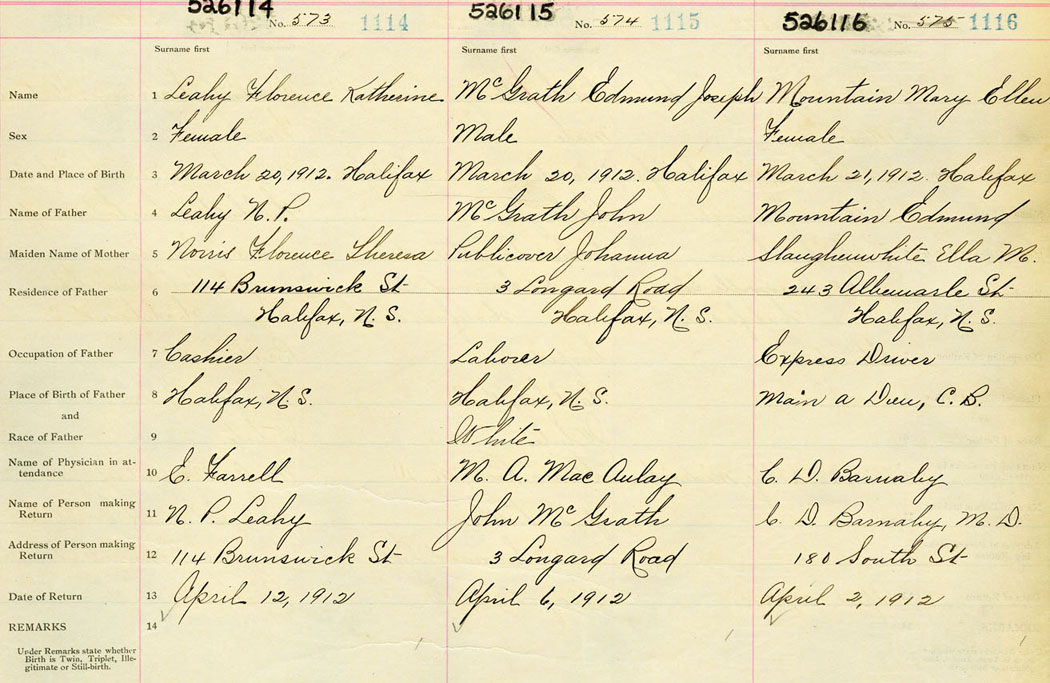 526114 No. 573 1114 526115 No. 574 1115 526116 No. 575 1116
Surname first Surname first Surname first
Name 1 Leahy Florence Katherine McGrath Edmund Joseph Mountain Mary Ellen
Sex 2 Female Male Female
Date and Place of Birth 3 March 20, 1912. Halifax March 20, 1912. Halifax March 21, 1912. Halifax
Name of Father 4 Leahy N. P. McGrath John Mountain Edmund
Maiden Name of Mother 5 Norris Florence Theresa Publicover Johanna Slaughenwhite Ella M.
Residence of Father 6 114 Brunswick St 3 Longard Road 243 Albemarle St
Halifax, N. S. Halifax, N. S. Halifax, N. S.
Occupation of Father 7 Cashier Laborer Express Driver
Place of Birth of Father 8 Halifax, N. S. Halifax, N. S. Main a Dieu, C. B.
and
Race of Father 9 White
Name of Physician in at-
tendance 10 E. Farrell M. A. MacAulay C. D. Barnaby
Name of Person making
Return 11 N. P. Leahy John McGrath C. D. Barnaby, M. D.
Address of Person making
Return 12 114 Brunswick St 3 Longard Road 180 South St
Date of Return 13 April 12, 1912 April 6, 1912 April 2, 1912
REMARKS 14
Under Remarks state whether
Birth is Twin, Triplet, Ille-
gitimate or Still-birth.